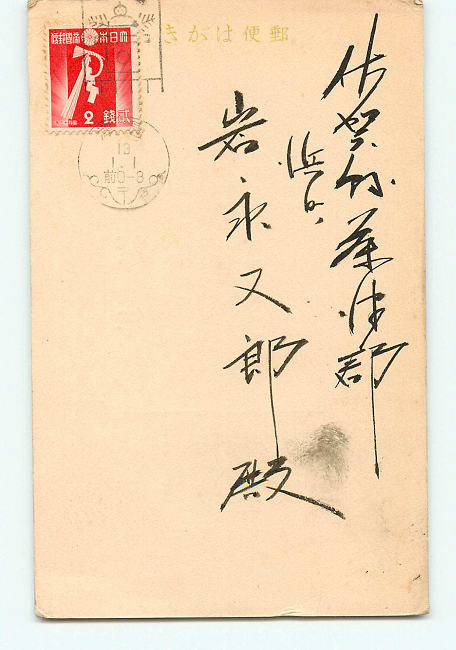 郵便はがき
佐賀縣藤津郡
浜町
岩永又郎殿
大日本帝國郵便
2 貳錢
13
1.1
前0-8